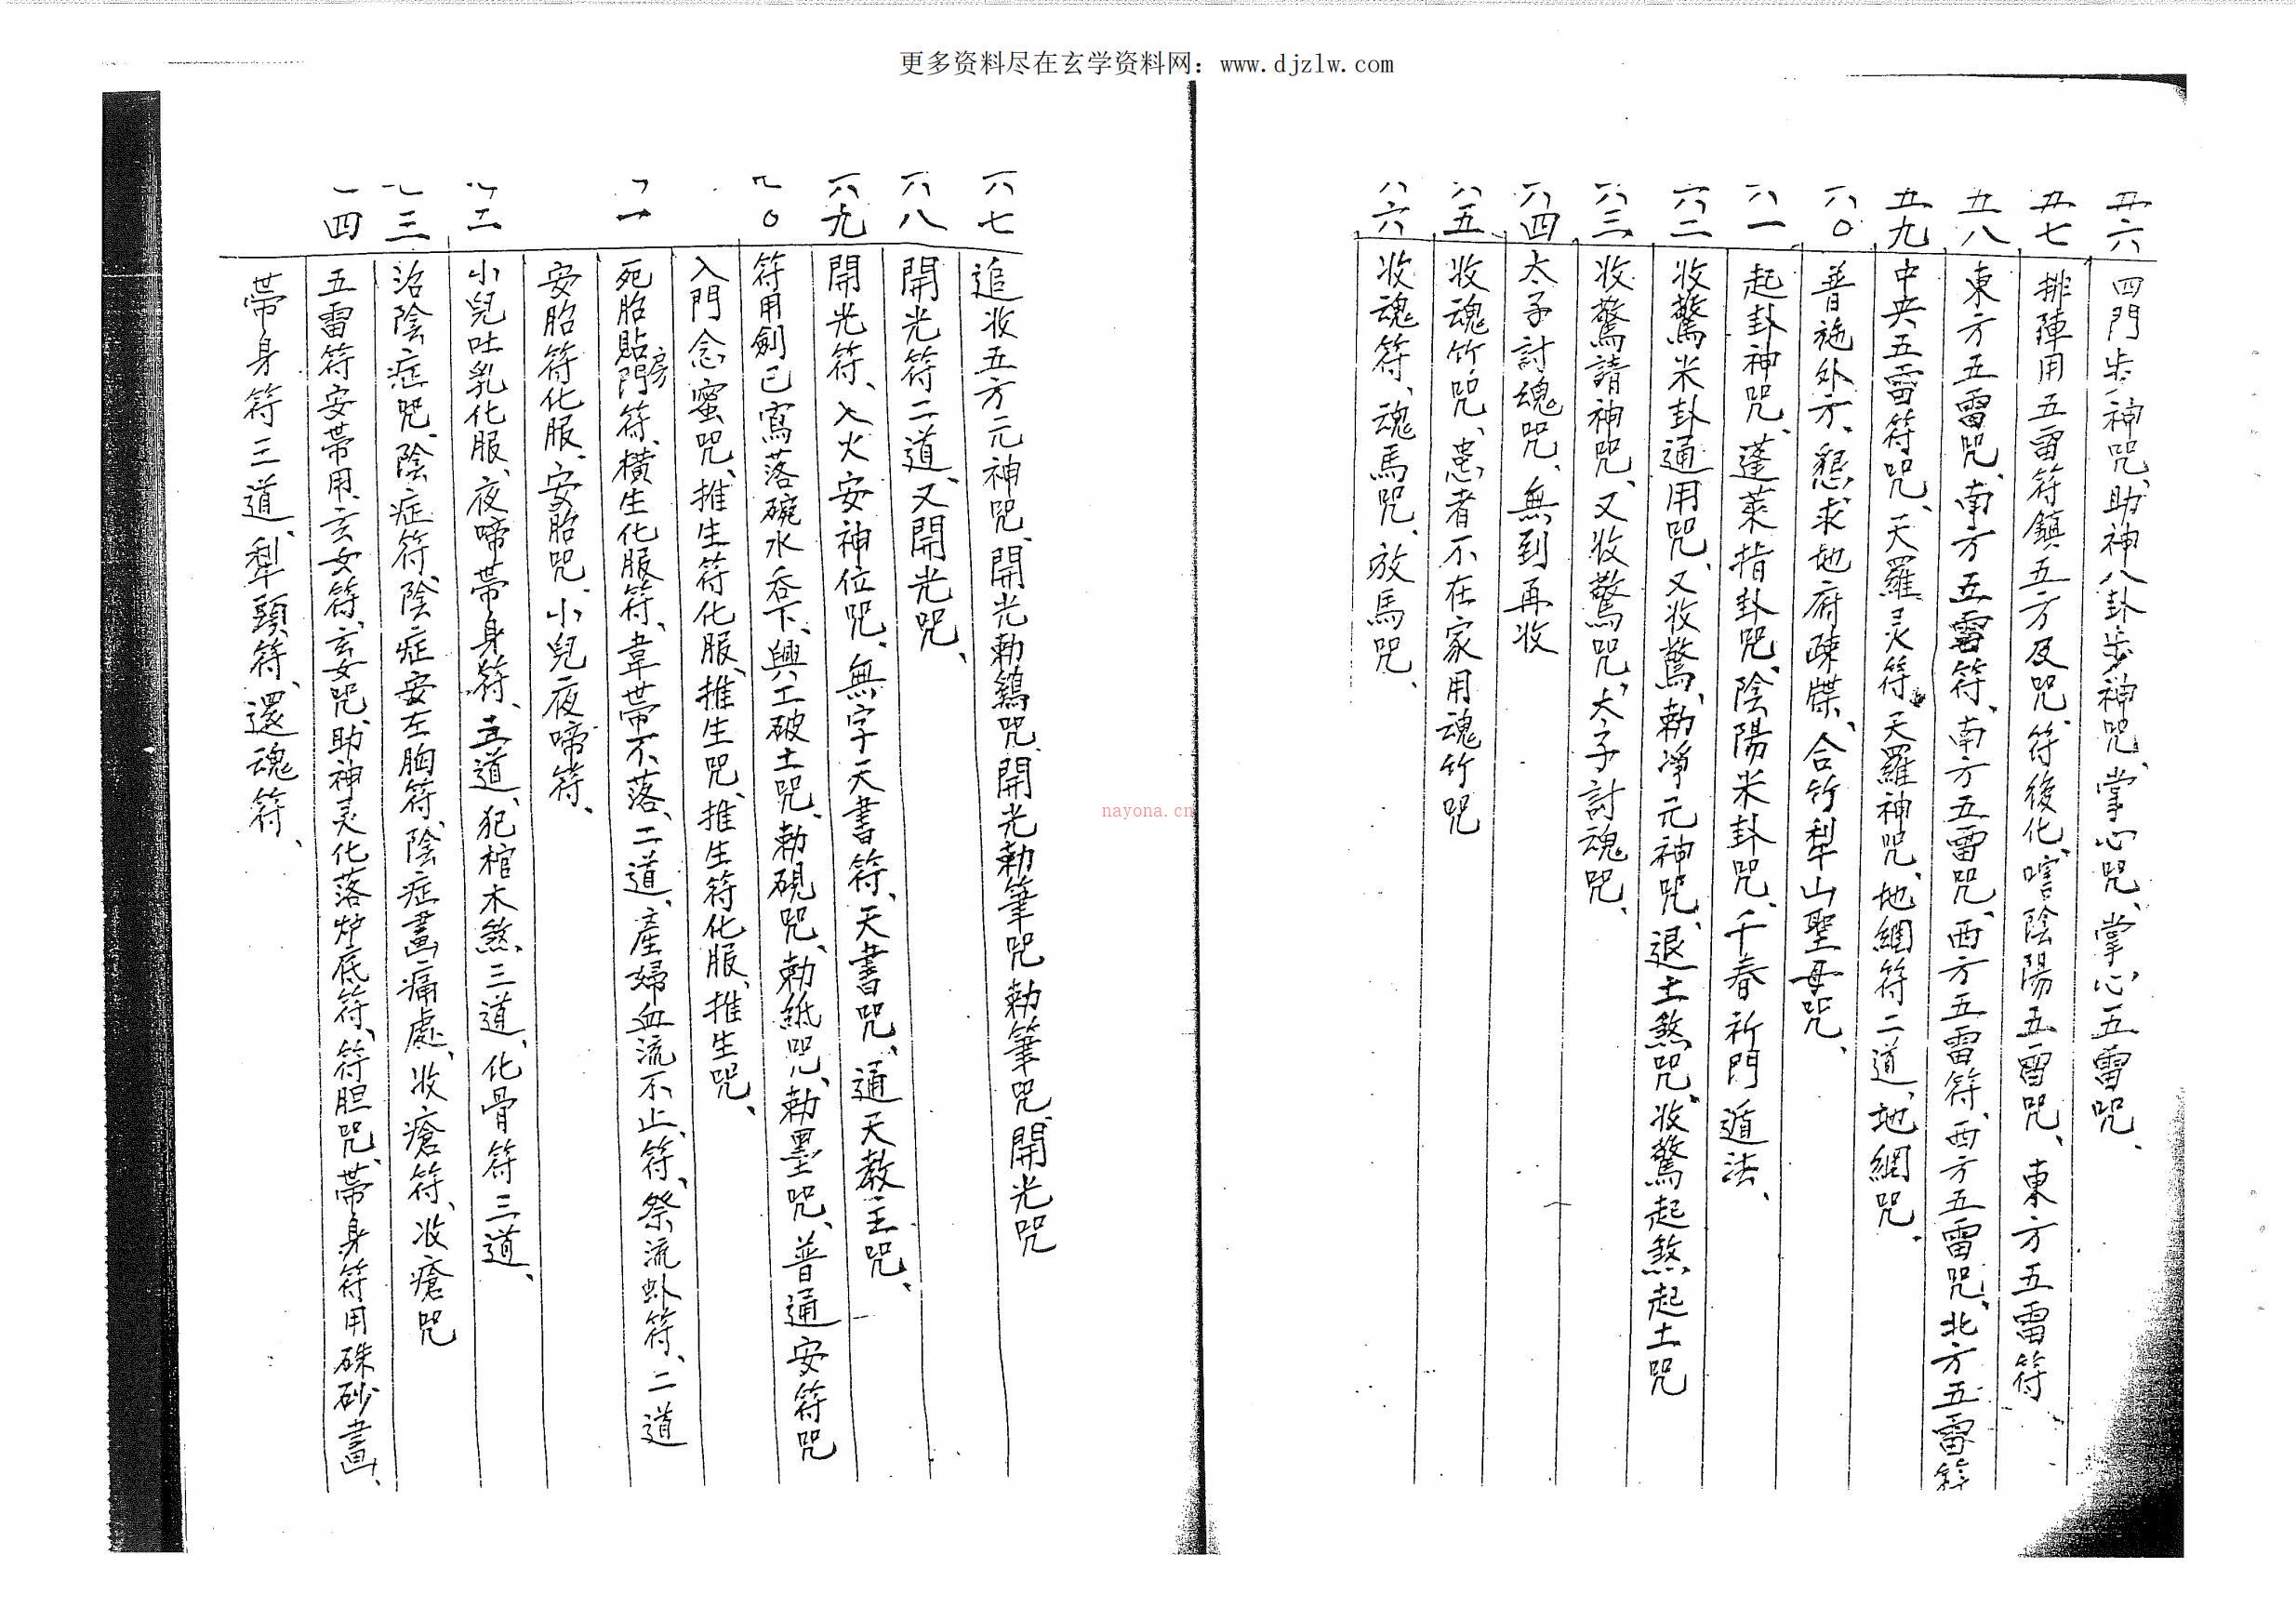 更多资料尽在玄学资料网：www.djzlw.com
五六 四門步神咒、助神八卦步神咒、掌心咒、掌心五雷咒、
五七 排陣用五雷符鎮五方及咒、符後化、嗐陰陽五雷咒、東方五雷符
五八 東方五雷咒、南方五雷符、南方五雷咒、西方五雷符、西方五雷咒、北方五雷符
五九 中央五雷符咒、天羅灵符、天羅神咒、地網符二道、地網咒、
六〇 普施外方、懇求地府疎牒、合竹犁山聖母咒、
六一 起卦神咒、蓬萊指卦咒、陰陽米卦咒、千春祈門遁法、
六二 收驚米卦通用咒、又收驚、勅淨元神咒、退土煞咒、收驚起煞起土咒
六三 收驚請神咒、又收驚咒、太子討魂咒、
六四 太子討魂咒、無到再收
六五 收魂竹咒、患者不在家用魂竹咒
六六 收魂符、魂馬咒、放馬咒、
六七 追收五方元神咒、開光勅鷄咒、開光勅筆咒勅筆咒、開光咒
六八 開光符二道、又開光咒、
六九 開光符、入火安神位咒、無字天書符、天書咒、通天教主咒、
〇 符用劍已寫落碗水吞下、興工破土咒、勅硯咒、勅紙咒、勅墨咒、普通安符咒
入門念蜜咒、推生符化服、推生咒、推生符化服、推生咒、
一 死胎貼房門符、橫生化服符、韋帶不落、二道、產婦血流不止、符、祭流虾符、二道
安胎符化服、安胎咒、小兒夜啼符、
二 小兒吐乳化服、夜啼帶身符、五道、犯棺木煞、三道、化骨符三道、
三 治陰症咒、陰症符、陰症安左胸符、陰症畫痛處、收瘡符、收瘡咒
四 五雷符安帶用、玄女符、玄女咒、助神灵化落炉底符、符胆咒、帶身符用硃砂畫、
帶身符三道、犁頭符、還魂符、
nayona.cn